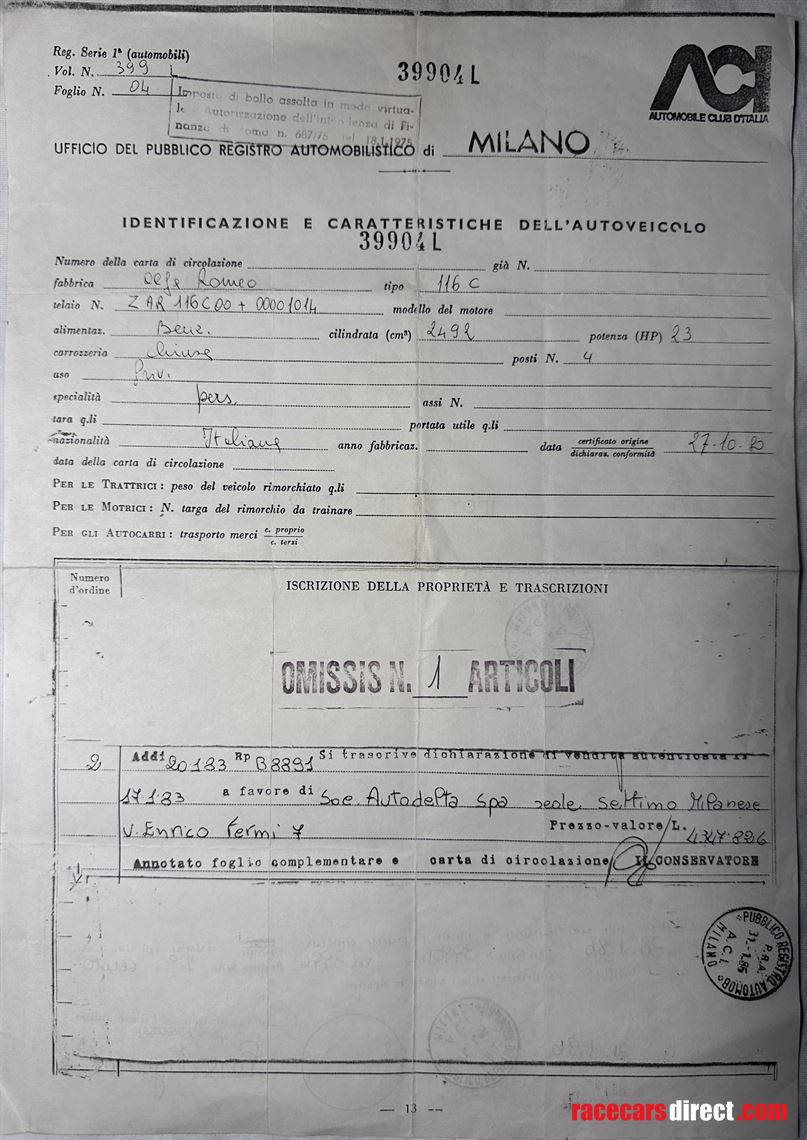 Reg. Serie 1ª (automobili)
Vol. N. 399 L
Foglio N. 04
39904 L
ACI
AUTOMOBILE CLUB D'ITALIA
Imposta di bollo assolta in modo virtua-
le Autorizzazione dell'Intendenza di Fi-
nanza di Roma n. 687/75 del 18.1.1975
UFFICIO DEL PUBBLICO REGISTRO AUTOMOBILISTICO di MILANO
IDENTIFICAZIONE E CARATTERISTICHE DELL'AUTOVEICOLO
39904 L
Numero della carta di circolazione già N.
fabbrica Alfa Romeo tipo 116 C
telaio N. ZAR 116C00 + 00001014 modello del motore
alimentaz. Benz. cilindrata (cm³) 2492 potenza (HP) 23
carrozzeria chiusa posti N. 4
uso Priv.
specialità pers. assi N.
tara q.li portata utile q.li
nazionalità Italiana anno fabbricaz. data certificato origine 27-10-80
dichiaraz. conformità
data della carta di circolazione
PER LE TRATTRICI: peso del veicolo rimorchiato q.li
PER LE MOTRICI: N. targa del rimorchio da trainare
PER GLI AUTOCARRI: trasporto merci c. proprio
c. terzi
Numero
d'ordine
ISCRIZIONE DELLA PROPRIETÀ E TRASCRIZIONI
OMISSIS N. 1 ARTICOLI
2 Addi 20183 Rp B8891 Si trascrive dichiarazione di vendita autenticata il
17.1.83 a favore di Soc. Autodelta Spa sede Settimo Milanese
V. Enrico Fermi 7 Prezzo-valore L. 4347826
Annotato foglio complementare e carta di circolazione IL CONSERVATORE
PUBBLICO REGISTRO AUTOMOB.
P.R.A.
A.C.I.
MILANO
— 13 --
racecarsdirect.com